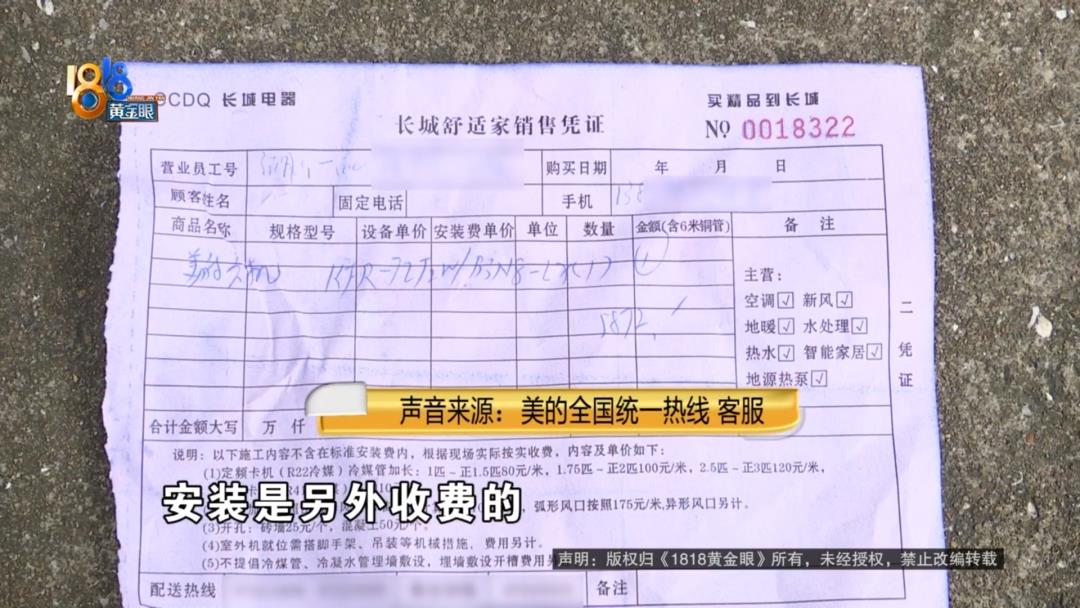 1818
黄金眼
CDQ 长城电器
买精品到长城
长城舒适家销售凭证
NO 0018322
营业员工号
购买日期 年 月 日
顾客姓名
固定电话
手机
商品名称 规格型号 设备单价 安装费单价 单位 数量 金额(含6米铜管) 备 注
5872
主营:
空调☑ 新风☑
地暖☑ 水处理☑
热水☑ 智能家居☑
地源热泵☑
二凭证
声音来源：美的全国统一热线 客服
合计金额大写 万 仟
说明：以下施工内容不含在标准安装费内，根据现场实际按实收费，内容及单价如下：
(1)定频卡机（R22冷媒）冷媒管加长：1匹～正1.5匹80元/米，1.75匹～正2匹100元/米，2.5匹～正3匹120元/米，
弧形风口按照175元/米,异形风口另计。
安装是另外收费的
(3)开孔：砖墙25元/个，混凝土50元/个。
(4)室外机就位需搭脚手架、吊装等机械措施，费用另计。
(5)不提倡冷煤管、冷凝水管埋墙敷设，埋墙敷设开槽费用另
声明：版权归《1818黄金眼》所有，未经授权，禁止改编转载
配送热线
备注